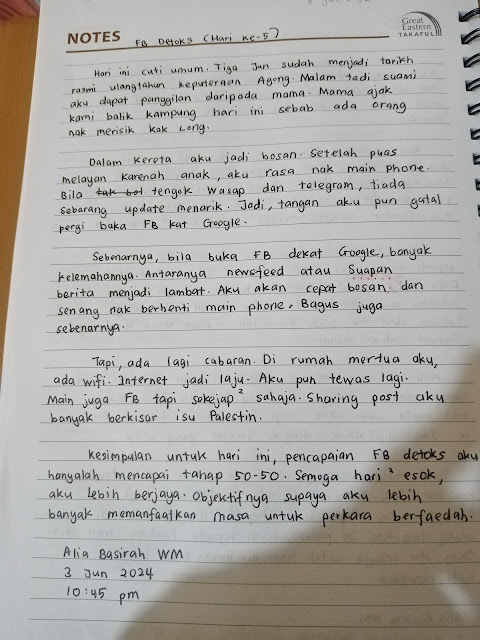 Great
Eastern
TAKAFUL
NOTES FB Detoks (Hari ke-5)
Hari ini cuti umum. Tiga Jun sudah menjadi tarikh
rasmi ulangtahun keputeraan Agong. Malam tadi suami
aku dapat panggilan daripada mama. Mama ajak
kami balik kampung hari ini sebab ada orang
nak merisik kak Long.
Dalam kereta aku jadi bosan. Setelah puas
melayan karenah anak, aku rasa nak main phone.
Bila tak bol tengok Wasap dan telegram, tiada
sebarang update menarik. Jadi, tangan aku pun gatal
pergi buka FB kat Google.
Sebenarnya, bila buka FB dekat Google, banyak
kelemahannya. Antaranya newsfeed atau Suapan
berita menjadi lambat. Aku akan cepat bosan dan
senang nak berhenti main phone. Bagus juga
sebenarnya.
Tapi, ada lagi cabaran. Di rumah mertua aku,
ada wifi. Internet jadi laju. Aku pun tewas lagi.
Main juga FB tapi sekejap² sahaja. Sharing post aku
banyak berkisar isu Palestin.
Kesimpulan untuk hari ini, pencapaian FB detoks aku
hanyalah mencapai tahap 50-50. Semoga hari² esok,
aku lebih berjaya. Objektifnya supaya aku lebih
banyak memanfaatkan masa untuk perkara berfaedah.
Alia Basirah WM
3 Jun 2024
10:45 pm